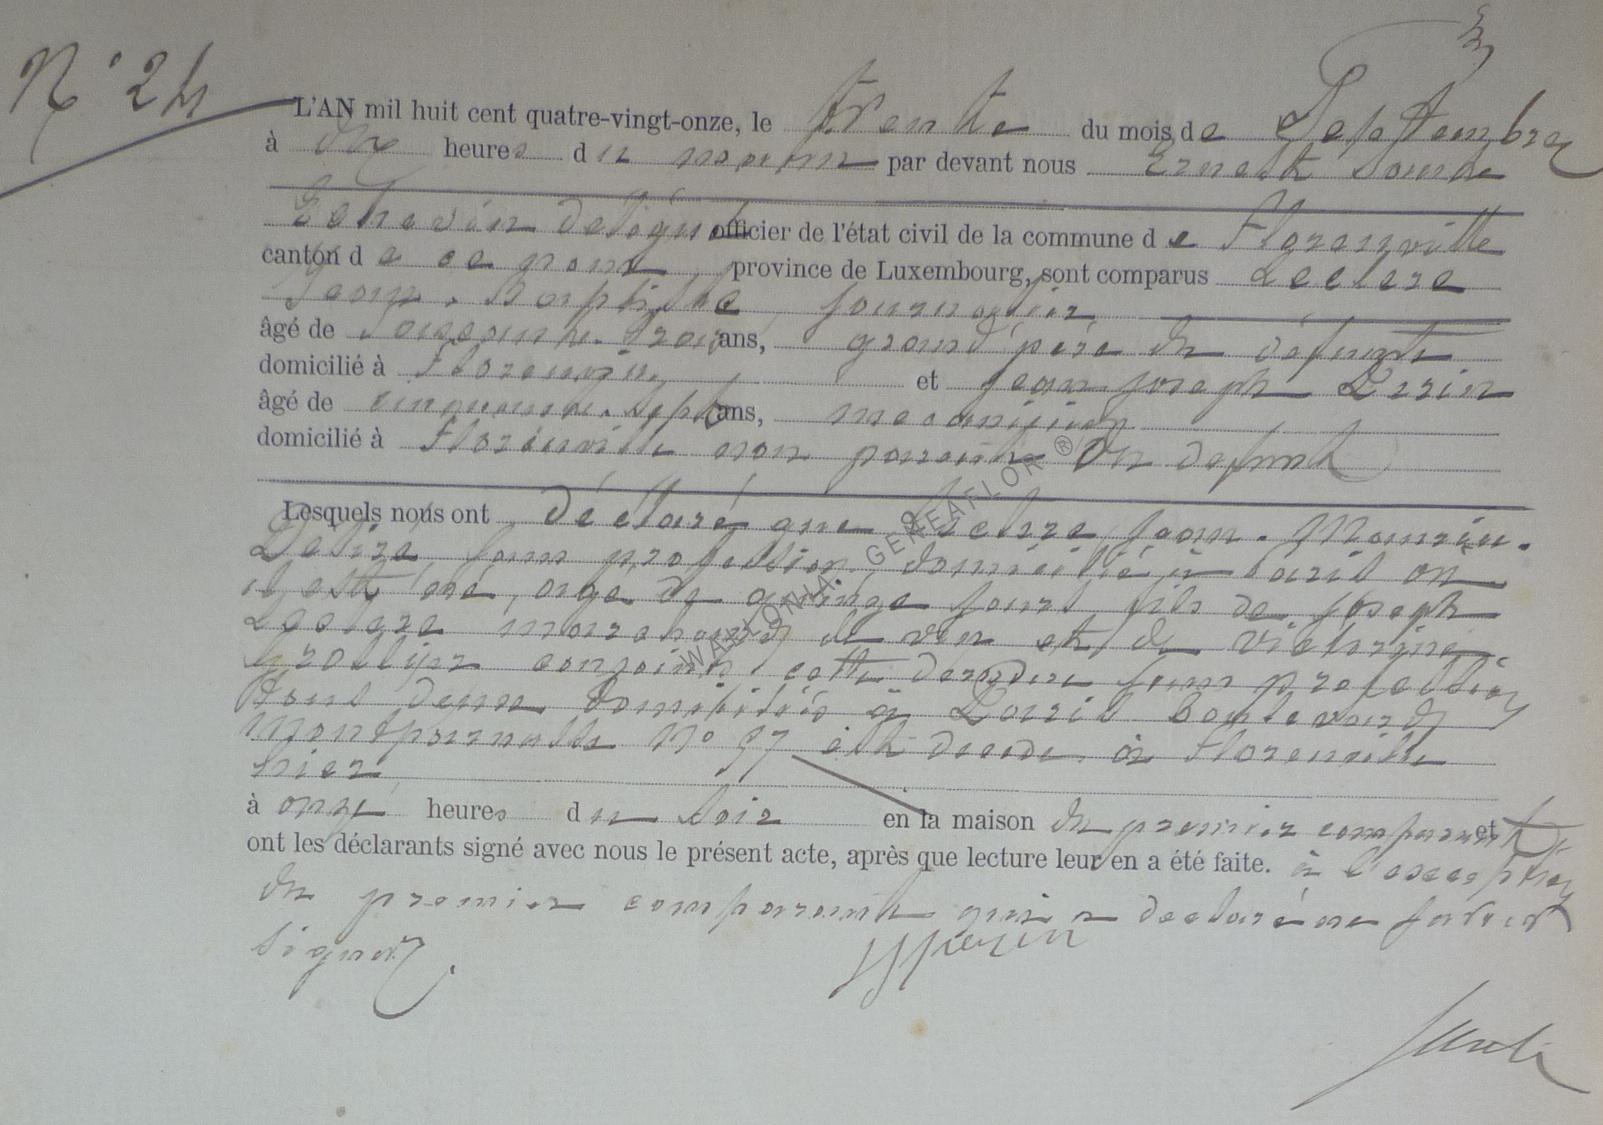 N° 24
L'AN mil huit cent quatre-vingt-onze, le trente du mois de Septembre
à dix heures du matin par devant nous Ernest
Echevin délégué officier de l'état civil de la commune de Florenville
canton de ce nom, province de Luxembourg, sont comparus Leclere
Jean-Baptiste, journalier
âgé de soixante-trois ans, grand père du défunt
domicilié à Florenville et Jean Joseph Perin
âgé de cinquante-sept ans, mecanicien
domicilié à Florenville non parent du defunt
Lesquels nous ont déclaré que Leclere Jean-Maurice-
Désiré sans profession domicilié à Paris où
il est né, âgé de quinze jours fils de Joseph
Leclere marchand de vin et de Victorine
conjoints, cette dernière sans profession
tous deux domiciliés à Paris Boulevard
Montparnasse N° 97 est décédé à Florenville
hier
à onze heures du soir en la maison du premier comparant et
ont les déclarants signé avec nous le présent acte, après que lecture leur en a été faite. à l'exception
du premier comparant qui a declaré ne savoir
signer.
JJPerin
WALLONIA GENEAFLOR ®